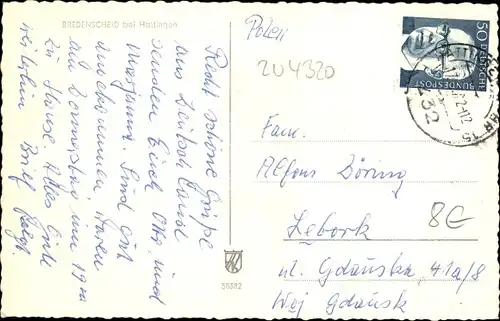 BREDENSCHEID bei Hattingen
Recht schöne Grüße
aus Deutschland
senden Euch Otto und
Marjanne. Sind gut
angekommen waren
am Donnerstag um 19
zu Hause Alles Gute
Brief folgt.
58382
Polen
2U4320
50 DEUTSCHE
BUNDESPOST
432
Fam.
Alfons Döring
Lębork
8E
ul. Gdańska 41a/8
Woj Gdańsk